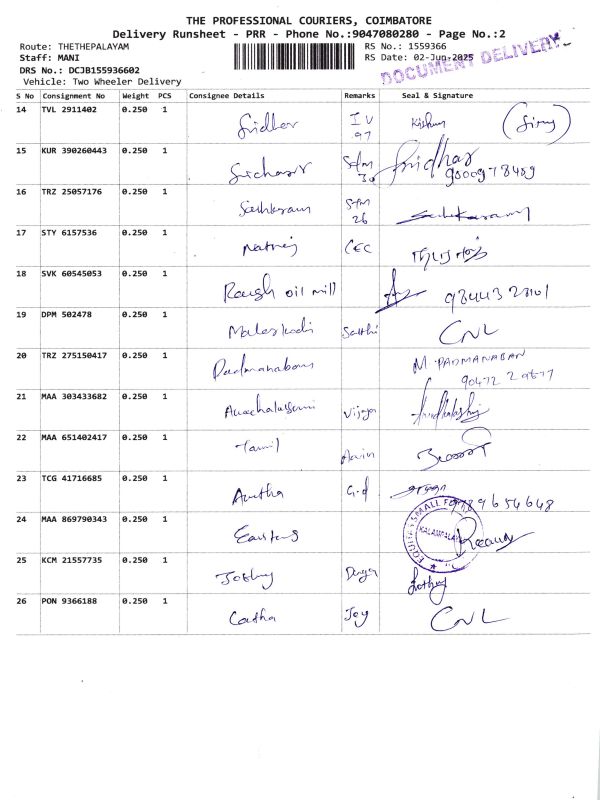 THE PROFESSIONAL COURIERS, COIMBATORE
Delivery Runsheet - PRR - Phone No.:9047080280 - Page No.:2
Route: THETHEPALAYAM RS No.: 1559366
Staff: MANI RS Date: 02-Jun-2025
DOCUMENT DELIVERY
DRS No.: DCJB155936602
Vehicle: Two Wheeler Delivery
S No Consignment No Weight PCS Consignee Details Remarks Seal & Signature
14 TVL 2911402 0.250 1 Sridher IV 97
15 KUR 390260443 0.250 1 Sfm 30 Sridhar 9800978489
16 TRZ 25057176 0.250 1 Sathkaram Sfm 26
17 STY 6157536 0.250 1 CEC
18 SVK 60545053 0.250 1 Rough oil mill
19 DPM 502478 0.250 1 Sakthi CNL
20 TRZ 275150417 0.250 1 Padmanabam M PADMANABAN
21 MAA 303433682 0.250 1 Vijaya
22 MAA 651402417 0.250 1 Tamil
23 TCG 41716685 0.250 1 Anitha G-d
24 MAA 869790343 0.250 1 EQUITAS SMALL
25 KCM 21557735 0.250 1 Jothy
26 PON 9366188 0.250 1 Joy CNL